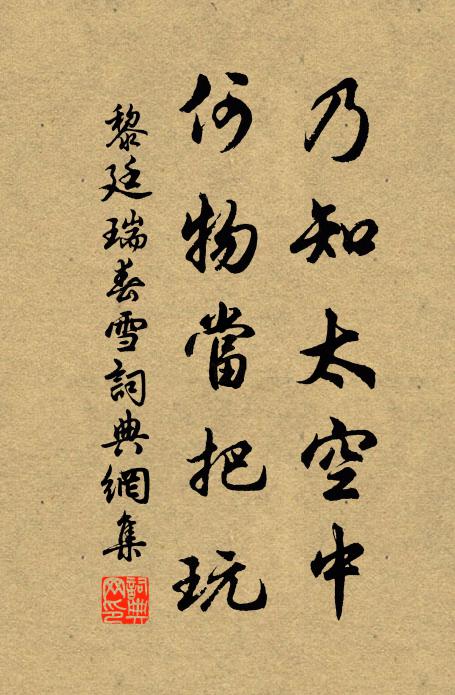 乃知太空中
何物當把玩
黎廷瑞春雪詞典網集
詞典网印